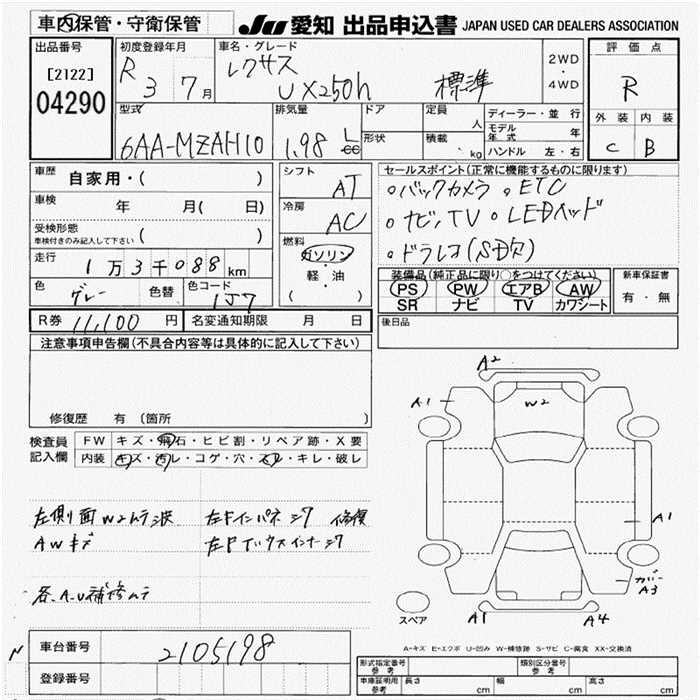 車内保管・守衛保管
JU 愛知 出品申込書 JAPAN USED CAR DEALERS ASSOCIATION
出品番号
[2122]
04290
初度登録年月
R 3 7月
車名・グレード
レクサス
UX250h 標準
2WD
・
4WD
評価点
R
外装 内装
C B
型式
6AA-MZAH10
排気量
1.98 L
cc
ドア
形状
定員
人
積載
kg
ディーラー・並行
モデル年式 年
ハンドル 左・右
車歴 自家用・( )
車検 年 月( 日)
受検形態
車検付きのみ記入して下さい ( )
走行 1万3千088km
色 グレー 色替 色コード 1J7
シフト AT
冷房 AC
燃料
ガソリン
・
軽・油
( )
セールスポイント(正常に機能するものに限ります)
。バックカメラ 。ETC
。ナビ,TV 。LEDヘッド
。ドラレコ(SD欠)
装備品(純正品に限り○をつけてください)
PS PW エアB AW
SR ナビ TV カワシート
新車保証書
有・無
R券 11,100 円 名変通知期限 月 日
後日品
注意事項申告欄(不具合内容等は具体的に記入して下さい)
修復歴 有(箇所 )
検査員記入欄
FW キズ・飛石・ヒビ割・リペア跡・X要
内装 キズ・汚レ・コゲ・穴・スレ・キレ・破レ
左側面W2ムラ波 左Fインパネシワ 修復
AWキズ
各.A.U補修ムラ
A2
A1
W2
A1
カバーA3
A1
A4
スペア
A-キズ E-エクボ U-凹み W-補修跡 S-サビ C-腐食 XX-交換済
N
車台番号 2105198
登録番号
形式指定番号
参考
類別区分番号
参考
車庫証明用
参考
長さ cm 幅 cm 高さ cm